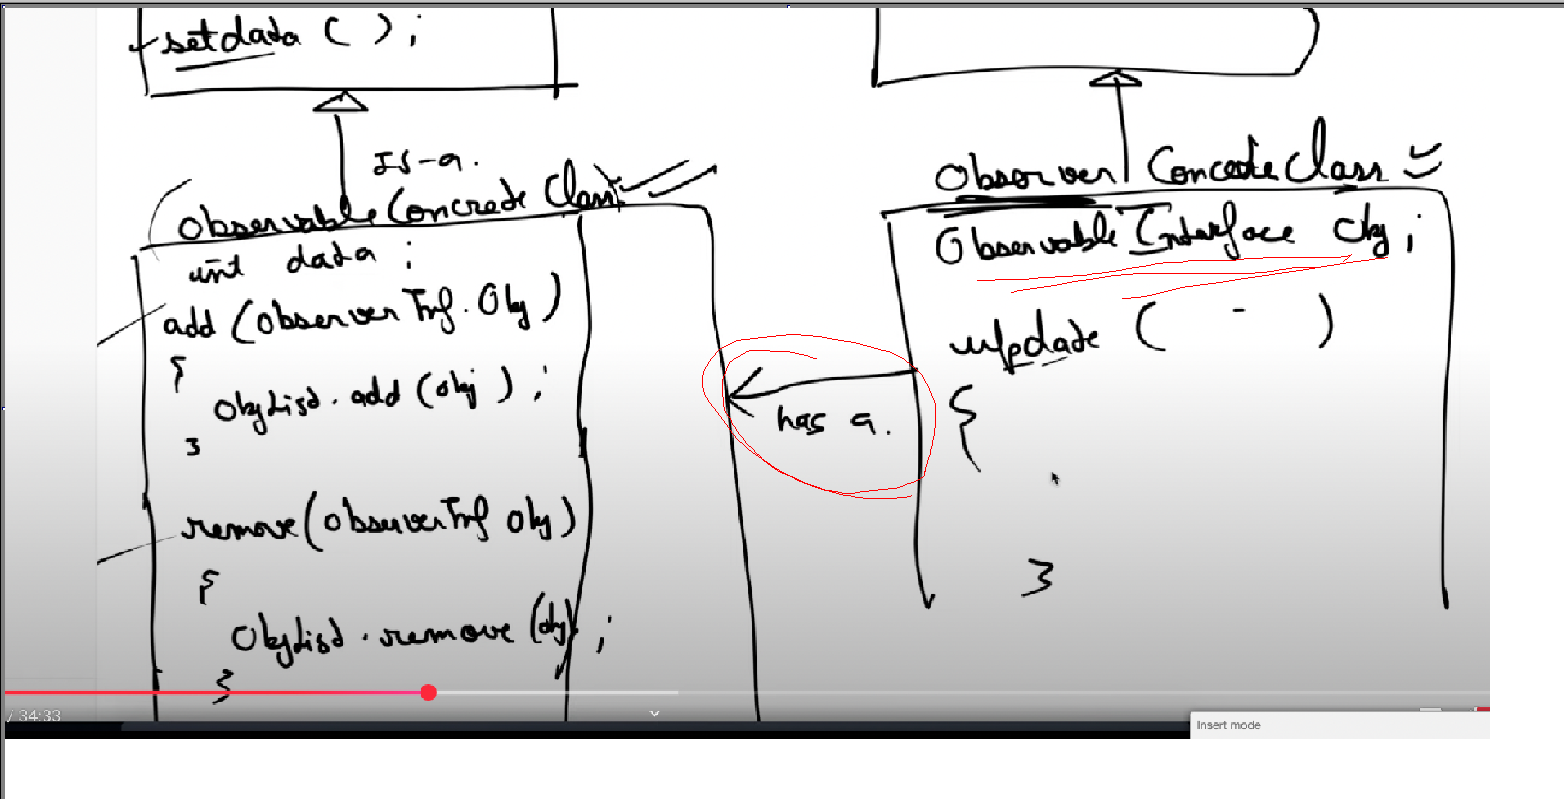 setdata ( ) ;
IS-a.
Observable Concrete Class
int data ;
add (Observer Inf. Obj)
{
ObjList. add (obj) ;
}
remove (Observer Inf Obj)
{
ObjList. remove (obj) ;
}
has a.
Observer Concrete Class
Observable Interface obj ;
update ( - )
{
}
/ 34:33
Insert mode